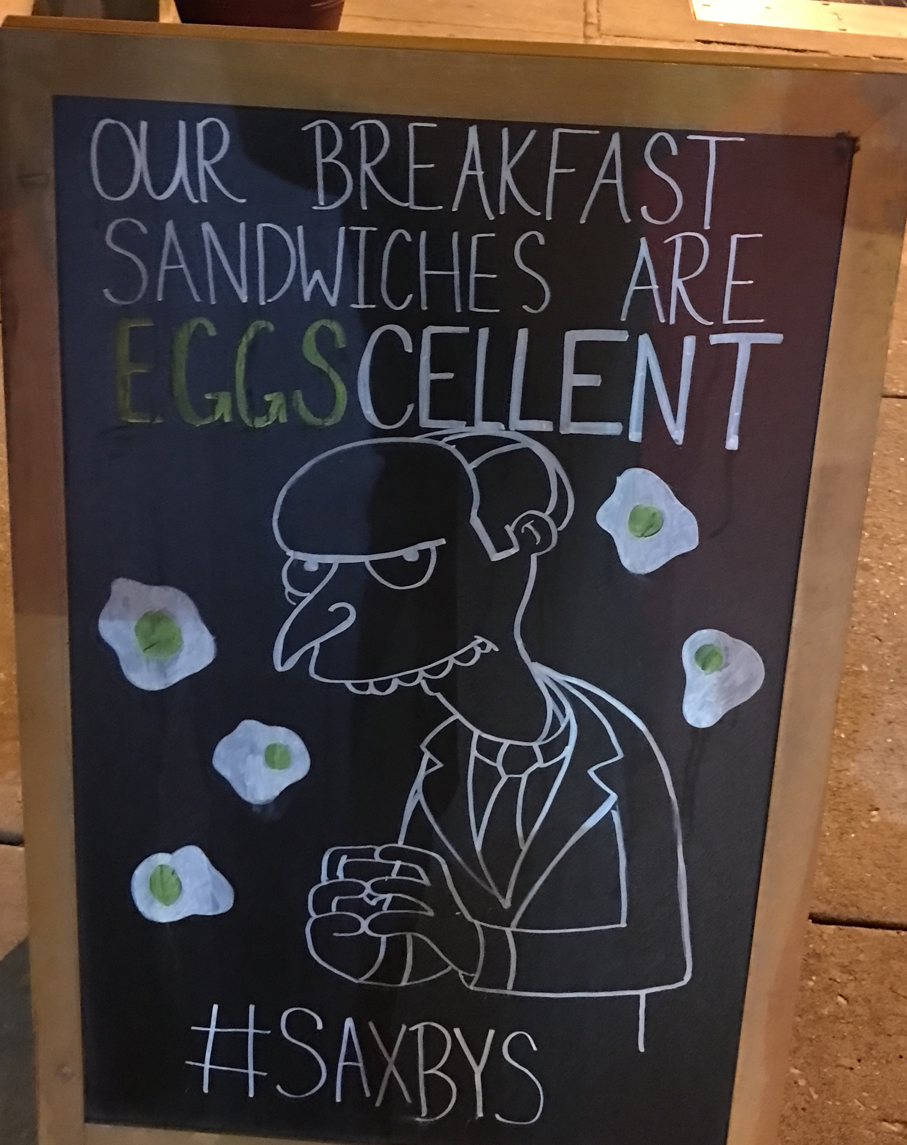 OUR BREAKFAST
SANDWICHES ARE
EGGSCELLENT
#SAXBYS